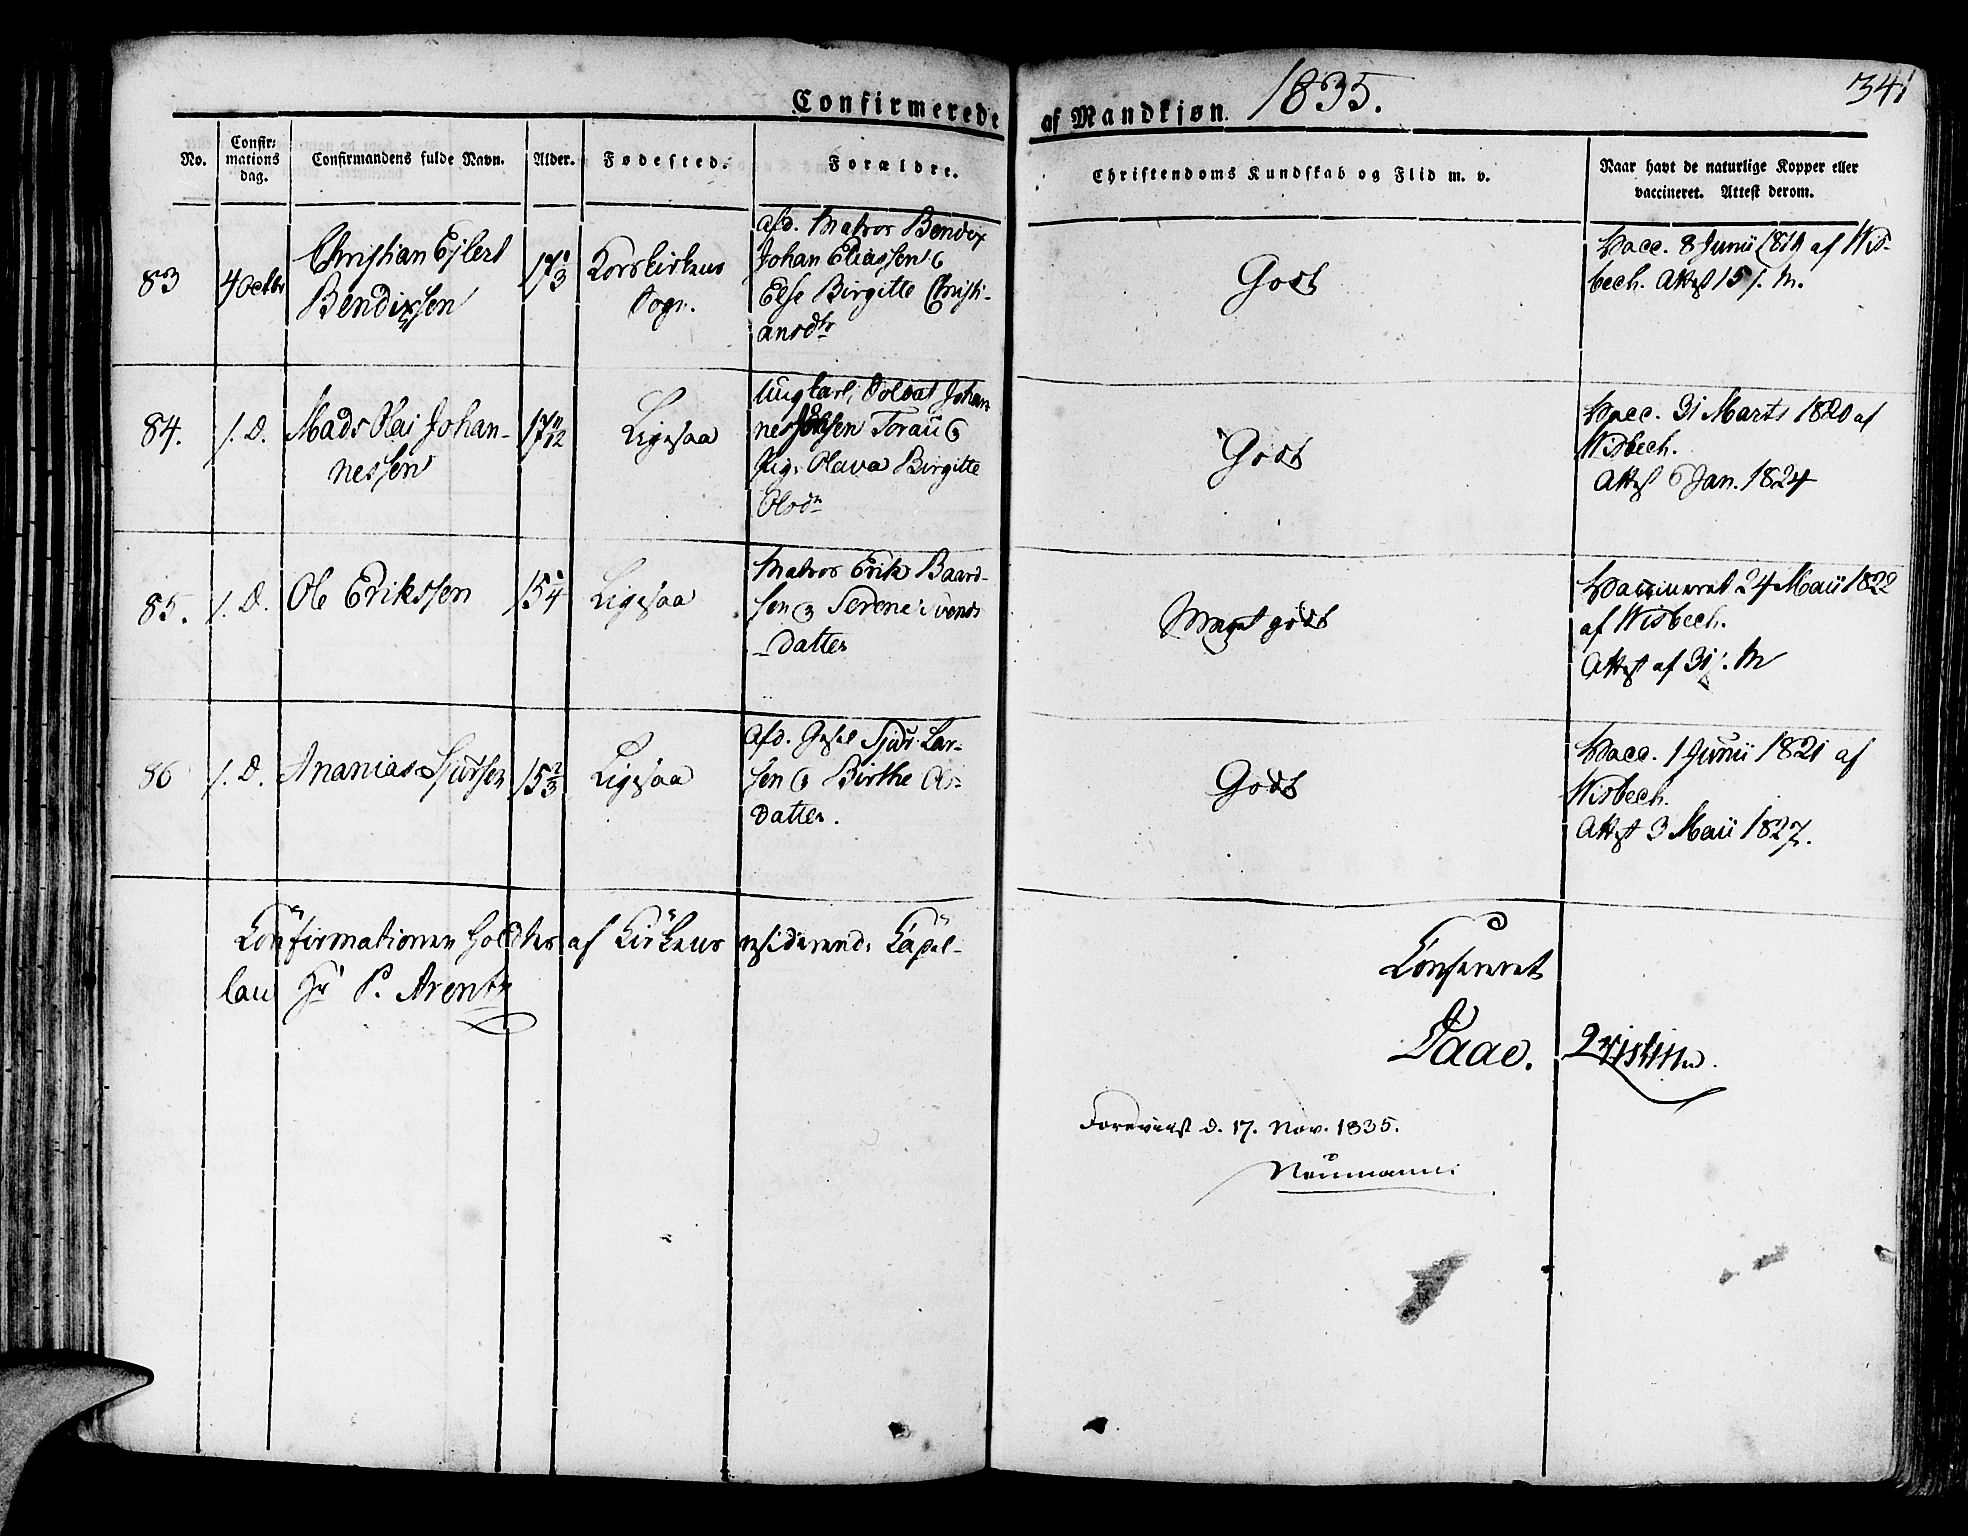 Confirmerede af Mandkjøn. 1835. 341
No.
Confir:
mations
dag.
Confirmandens fulde Navn.
Alder.
Fødested.
Forældre.
Christendoms Kundskab og Flid m. v.
Naar havt de naturlige Kopper eller
vaccineret. Attest derom.
83
4 Octbr
Christian Ejlert
Bendixsen
17 1/3
Korskirkens
Sogn.
Afd. Matros Bendix
Johan Eliassen &
Else Birgitte Christi-
ansdtr
Godt
Vacc. 8 Junii 1819 af Wis-
bech. Attest 15 s. M.
84.
s. D.
Mads Olai Johan-
nessen
17 11/12
Ligesaa
Ungkarl, Soldat Johan
Torau &
Pig. Olava Birgitte
Olsdr
Godt
Vacc. 31 Marts 1820 af
Wisbech.
Attest 6 Jan. 1824
85.
s. D.
Ole Erikssen
15 1/4
Ligesaa
Matros Erik Baard-
sen & Serene Svends
-datter
Meget godt
Vaccineret 24 Maii 1822
af Wisbech.
Attest af 31 s. M
86
s. D.
Ananias Sjursen
15 2/3
Ligesaa
Afd. Gesel Sjur Lar-
sen & Birthe As-
datter.
Godt
Vacc. 1 Junii 1821 af
Wisbech.
Attest 3 Maii 1827.
Confirmationen holdtes af Kirkens residerende Capel-
lan Hr P. Arentz
Confereret
Daae. Qvistin
Foreviist d. 17. Nov. 1835.
Neumann.